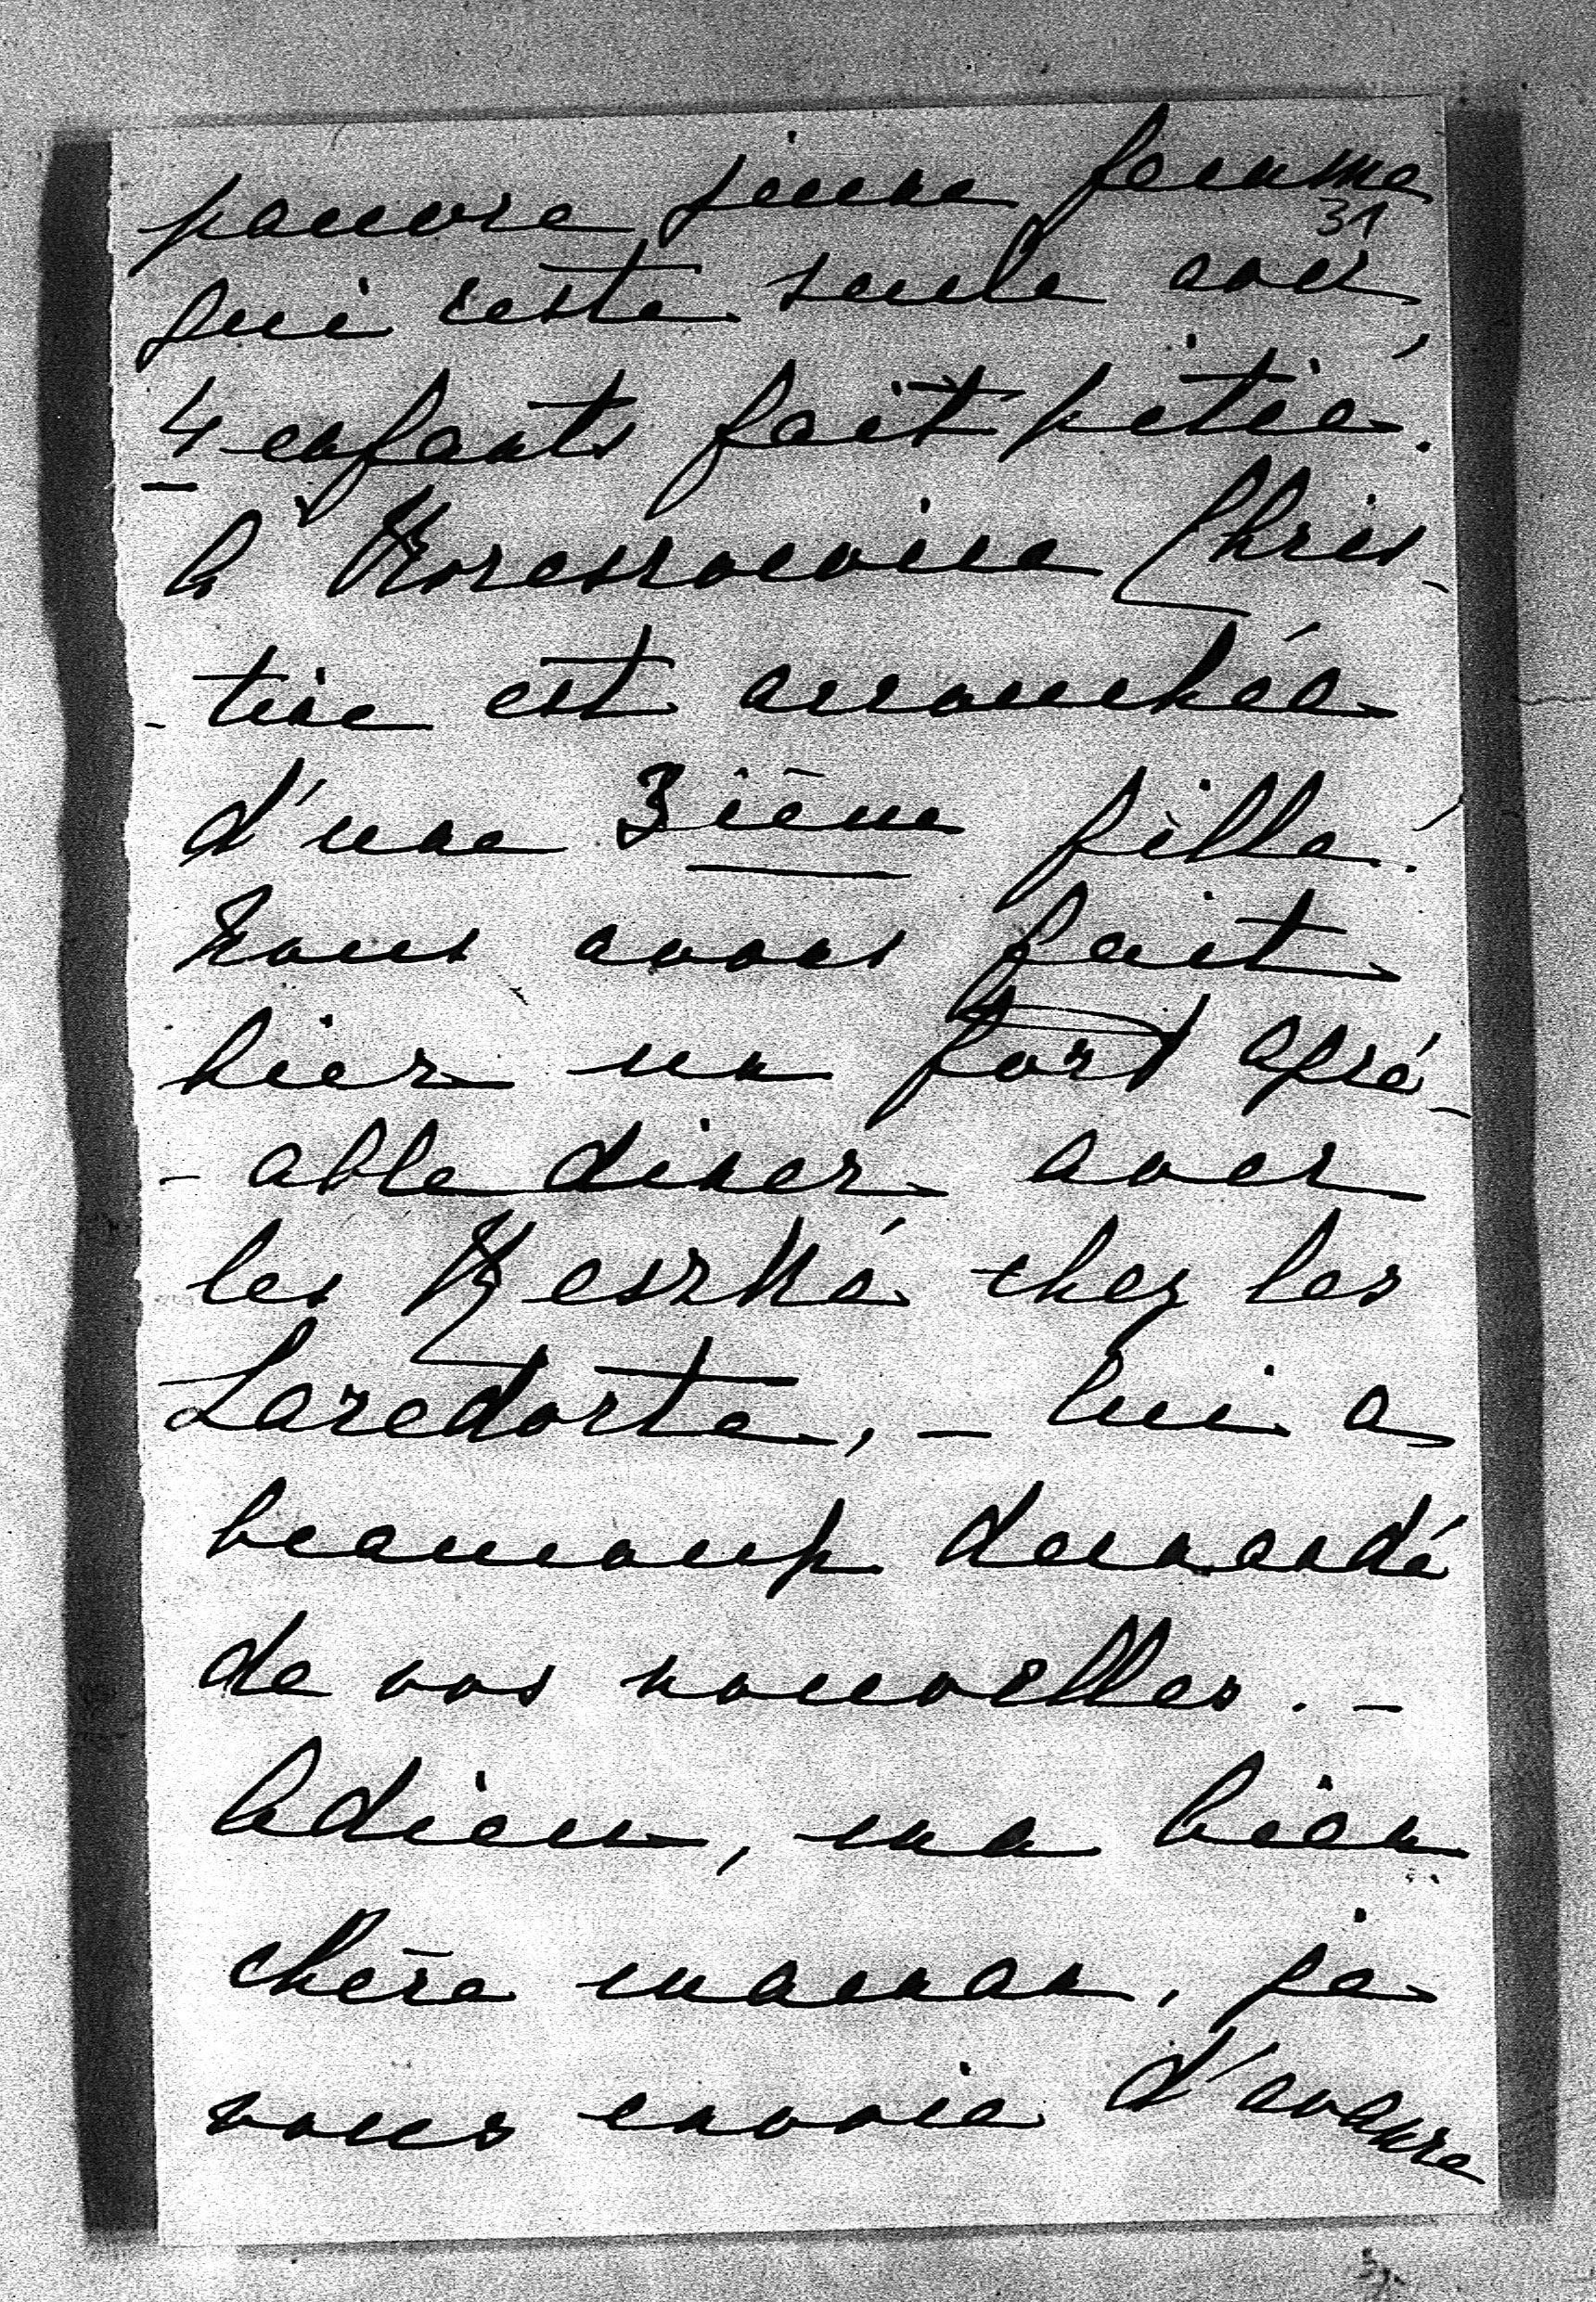 pauvre jeune femme
31
qui reste seule avec
4 enfants fait pitié.
A Kressowice Chris-
-tine est accouchée
d'une 3ième fille!
Nous avons fait
hier un fort agré-
-able diner avec
les Reszké chez les
Laredorte, – lui a
beaucoup demandé
de vos nouvelles. –
Adieu, ma bien
chère maman, je
vous envoie d'avance